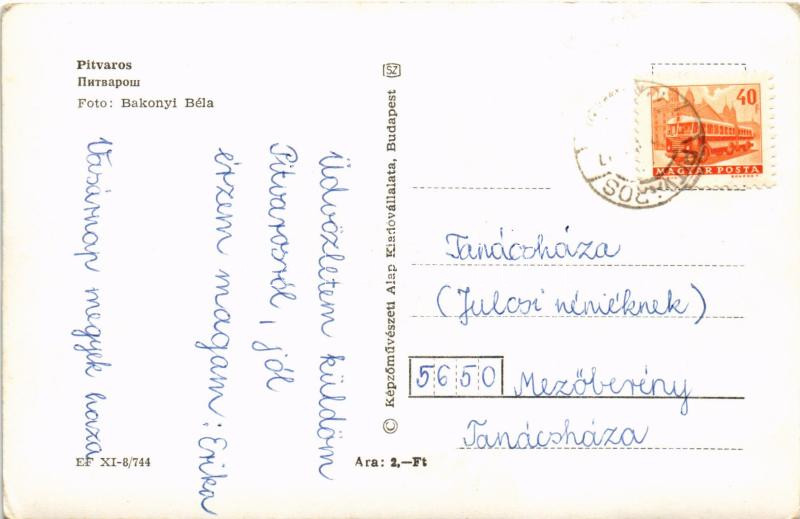 Pitvaros
Питварош
Foto: Bakonyi Béla
Üdvözletem küldöm
Pitvarosról, jól
érzem magam: Erika
Vasárnap megyek haza
EF XI-8/744
Ára: 2,—Ft
© Képzőművészeti Alap Kiadóvállalata, Budapest
SZ
40F
MAGYAR POSTA
Tanácsháza
(Julcsi néniéknek)
5650 Mezőberény
Tanácsháza